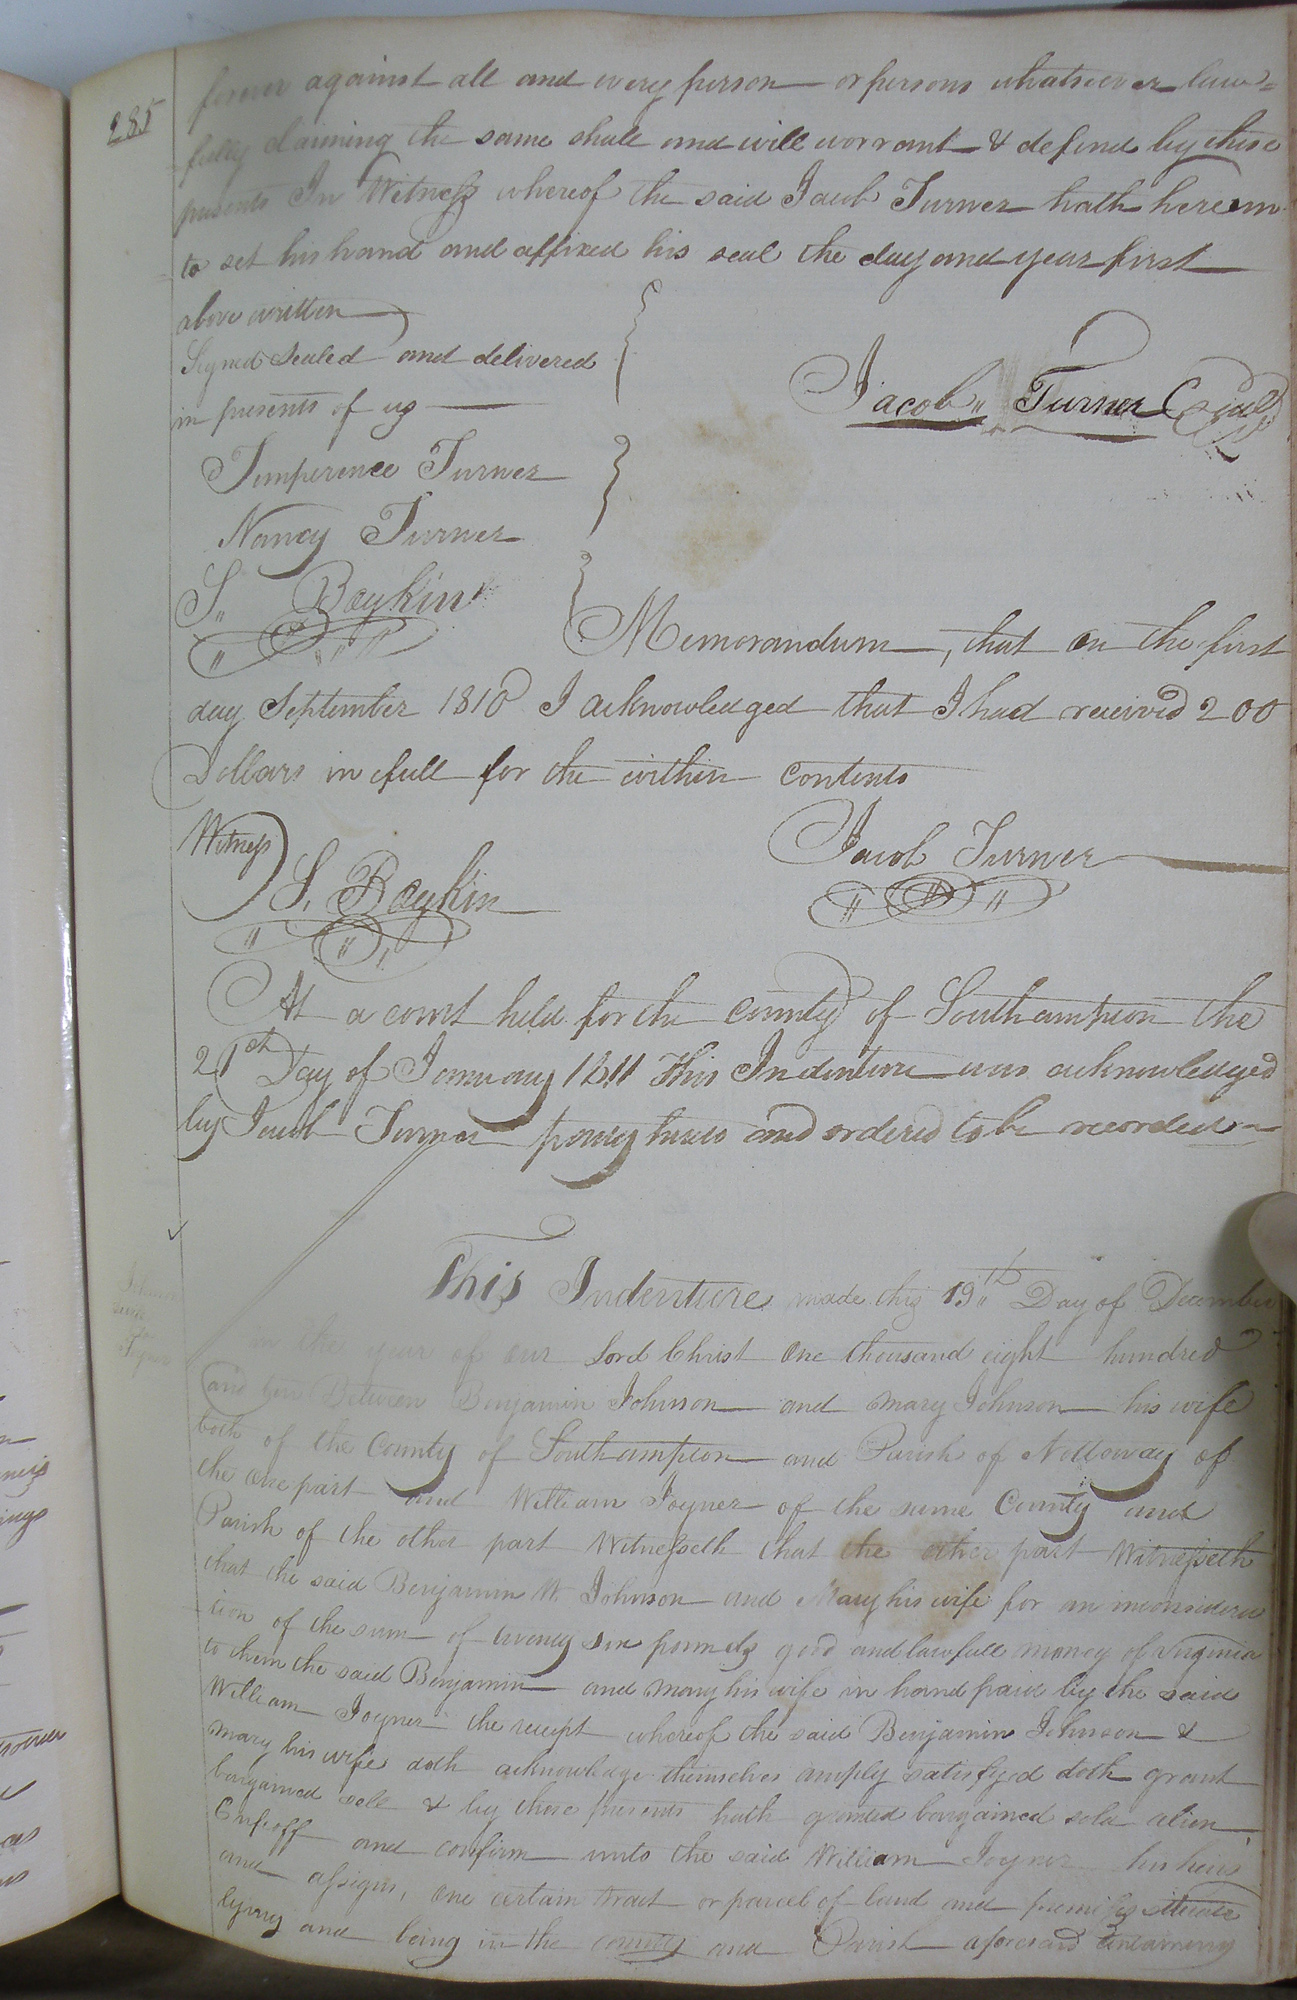 285
forever against all and every person or persons whatsoever law=
fully claiming the same shall and will warrant & defend by these
presents In Witness whereof the said Jacob Turner hath hereun
to set his hand and affixed his seal the day and year first
above written
Signed Sealed and delivered
in presents of us
Jacob Turner Seal
Temperence Turner
Nancy Turner
S. Boykin
Memorandum, that on the first
day September 1810 I acknowledged that I had received 200
Dollars in full for the within contents
Witness
S. Boykin
Jacob Turner
At a court held for the County of Southampton the
21st Day of January 1811 This Indenture was acknowledged
by Jacob Turner party hereto and ordered to be recorded
This Indenture made this 19th Day of December
in the year of our Lord Christ One thousand eight hundred
and ten Between Benjamin Johnson and Mary Johnson his wife
both of the County of Southampton and Parish of Nottoway of
the one part and William Joyner of the same County and
Parish of the other part Witnesseth that the other part Witnesseth
that the said Benjamin W Johnson and Mary his wife for an inconsidera
tion of the sum of twenty six pounds good and lawfull money of Virginia
to them the said Benjamin and Mary his wife in hand paid by the said
William Joyner the receipt whereof the said Benjamin Johnson &
Mary his wife doth acknowledge themselves amply satisfyed doth grant
bargained sell & by these presents hath granted bargained sold alien
Enfeoff and confirm unto the said William Joyner his heirs
and assigns, One certain tract or parcel of land and premises situate
lying and being in the county and Parish aforesaid